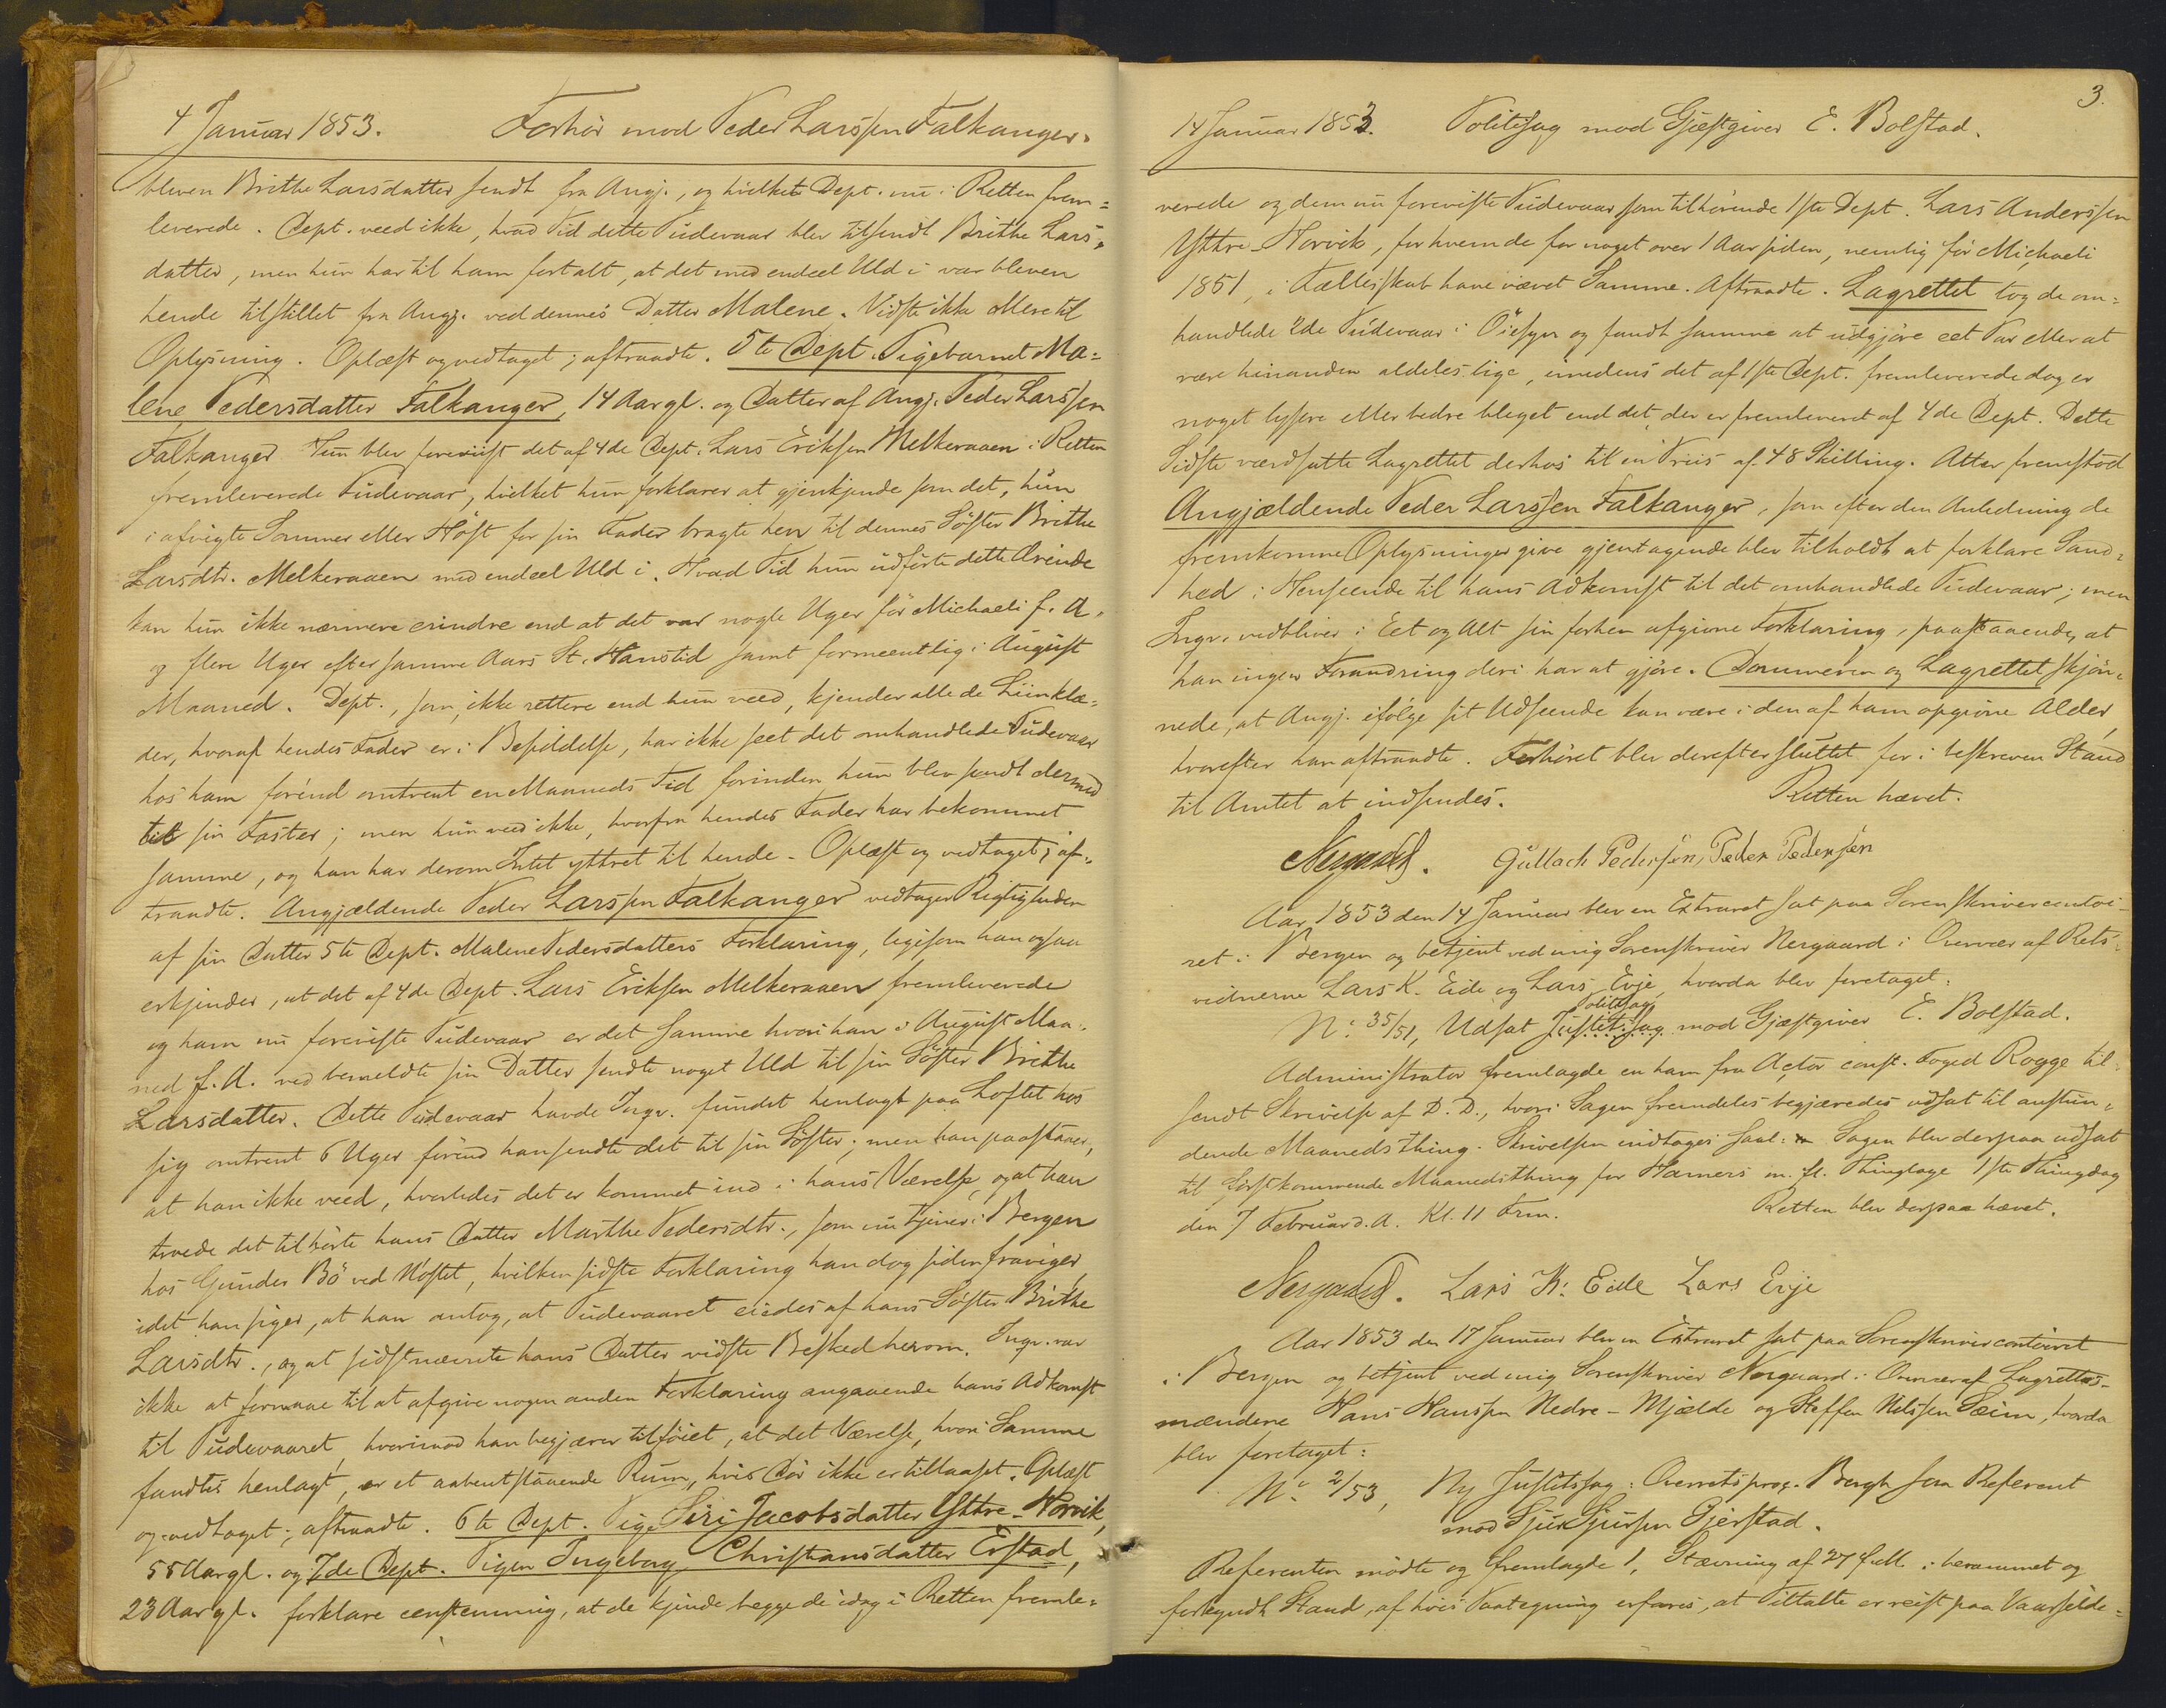 4 Januar 1853. Forhör mod Peder Larssen Falkanger.
bleven Brithe Larsdatter sendt fra Angj., og hvilket Dept. nu i Retten frem=
leverede. Dept. veed ikke, hvad Tid dette Pudevaar blev tilsendt Brithe Lars=
datter, men hun har til ham fortalt, at det med endeel Uld i var bleven
hende tilstillet fra Angj. ved dennes Datter Malene. Vidste ikke Mere til
Oplysning. Oplæst og vedtaget; aftraadte. 5te Dept. Pigebarnet Ma=
lene Pedersdatter Falkanger, 14 Aar gl. og Datter af Angj. Peder Larssen
Falkanger. Hun blev foreviist det af 4de Dept. Lars Eriksen Melkeraaen i Retten
fremleverede Pudevaar, hvilket hun forklarer at gjenkjende som det, hun
i afvigte Sommer eller Höst for sin Fader bragte hen til dennes Söster Brithe
Larsdtr. Melkeraaen med endeel Uld i. Hvad Tid hun udförte dette Ærinde
kan hun ikke nærmere erindre end at det var nogle Uger för Michaeli f. A.
og flere Uger efter samme Aars St. Hanstid samt formeentlig i August
Maaned. Dept., som, ikke rettere end hun veed, kjender alle de Liinklæ=
der, hvoraf hendes Fader er i Besiddelse, har ikke seet det omhandlede Pudevaar
hos ham förend omtrent en Maaneds Tid forinden hun blev sendt dermed
til sin Faster; men hun veed ikke, hvorfra hendes Fader har bekommet
samme, og han har derom Intet yttret til hende. Oplæst og vedtaget; af=
traadte. Angjældende Peder Larssen Falkanger vedtager Rigtigheden
af sin Datter 5te Dept. Malene Pedersdatters Forklaring, ligesom han ogsaa
erkjender, at det af 4de Dept. Lars Eriksen Melkeraaen fremleverede
og ham nu foreviste Pudevaar er det Samme hvori han i August Maa=
ned f. A. ved bemeldte sin Datter sendte noget Uld til sin Söster Brithe
Larsdatter. Dette Pudevaar havde Ingv. fundet henlagt paa Loftet hos
sig omtrent 6 Uger förend han sendte det til sin Söster; men han paastaaer,
at han ikke veed, hvorledes det er kommet ind i hans Værelse, og at han
troede det tilhörte hans Datter Marthe Pedersdtr., som nu tjener i Bergen
hos Gunder Bö ved Nöstet, hvilken sidste Forklaring han dog siden fraviger,
idet han siger, at han antog, at Pudevaaret eiedes af hans Söster Brithe
Larsdtr., og at sidstnævnte hans Datter vidste Besked herom. Ingv. var
ikke at formaae til at afgive nogen anden Forklaring angaaende hans Adkomst
til Pudevaaret, hvorimod han begjærer tilföiet, at det Værelse, hvori Samme
fandtes henlagt, er et aabentstaaende Rum, hvis Dör ikke er tillaaset. Oplæst
og vedtaget; aftraadte. 6te Dept. Pige Siri Jacobsdatter Yttre-Horvik,
55 Aar gl. og 7de Dept. Pigen Ingeborg Christiansdatter Erstad,
23 Aar gl. forklare eenstemmig, at de kjende begge de idag i Retten fremle=
3.
14 Januar 1853. Politisag mod Gjæstgiver E. Bolstad.
verede og dem nu foreviste Pudevaar som tilhörende 1ste Dept. Lars Anderssen
Yttre-Horvik, for hvem de for noget over 1 Aar siden, nemlig för Michaeli
1851, i Fællesskab have vævet Samme. Aftraadte. Lagrettet tog de om=
handlede 2de Pudevaar i Öiesyn og fandt samme at udgjöre eet Par eller at
være hinanden aldeles lige, imedens det af 1ste Dept. fremleverede dog er
noget lysere eller bedre bleget end det, der er fremleveret af 4de Dept. Dette
Sidste værdsatte Lagrettet derhos til en Priis af 48 Skilling. Atter fremstod
Angjældende Peder Larssen Falkanger, som efter den Anledning de
fremkomne Oplysninger give gjentagende blev tilholdt at forklare Sand=
hed i Henseende til hans Adkomst til det omhandlede Pudevaar; men
Ingv. vedbliver i Eet og Alt sin forhen afgivne Forklaring, paastaaende, at
han ingen Forandring deri har at gjöre. Domeren og Lagrettet skjön=
nede, at Angj. ifölge sit Udseende kan være i den af ham opgivne Alder,
hvorefter han aftraadte. Forhöret blev derefter sluttet for i beskreven Stand
til Amtet at indsendes. Retten hævet.
Nergaard. Gullach Pedersen, Peder Pedersen
Aar 1853 den 14 Januar blev en Extraret sat paa Sorenskrivercontoi=
ret i Bergen og betjent ved mig Sorenskriver Nergaard i Overvær af Rets=
vidnerne Lars K. Eide og Lars Evje, hvorda blev foretaget:
Politisag
No. 35/51, Udsat Justitssag mod Gjæstgiver E. Bolstad.
Administrator fremlagde en ham fra Actor const. Foged Rogge til=
sendt Skrivelse af D. D., hvori Sagen fremdeles begjæredes udsat til anstun=
dende Maanedsthing. Skrivelsen indtages saal: Sagen blev derpaa udsat
til förstkommende Maanedsthing for Hamers m. fl. Thinglage 1ste Thingdag
den 7 Februar d. A. Kl. 11 Frm. Retten blev derpaa hævet.
Nergaard. Lars K. Eide Lars Evje
Aar 1853 den 17 Januar blev en Extraret sat paa Sorenskrivercontoiret
i Bergen og betjent ved mig Sorenskriver Nergaard i Overvær af Lagrettes=
mændene Hans Hanssen Nedre-Mjælde og Steffen Nilssen Seim, hvorda
blev foretaget:
No. 2/53, Ny Justitssag: Overretsproc. Bergh som Referent
mod Sjur Sjursen Gjerstad.
Referenten mödte og fremlagde 1, Stævning af 27 f. M. i berammet og
forkyndt Stand, af hvis Paategning erfares, at Tiltalte er reist paa Vaarsilde=